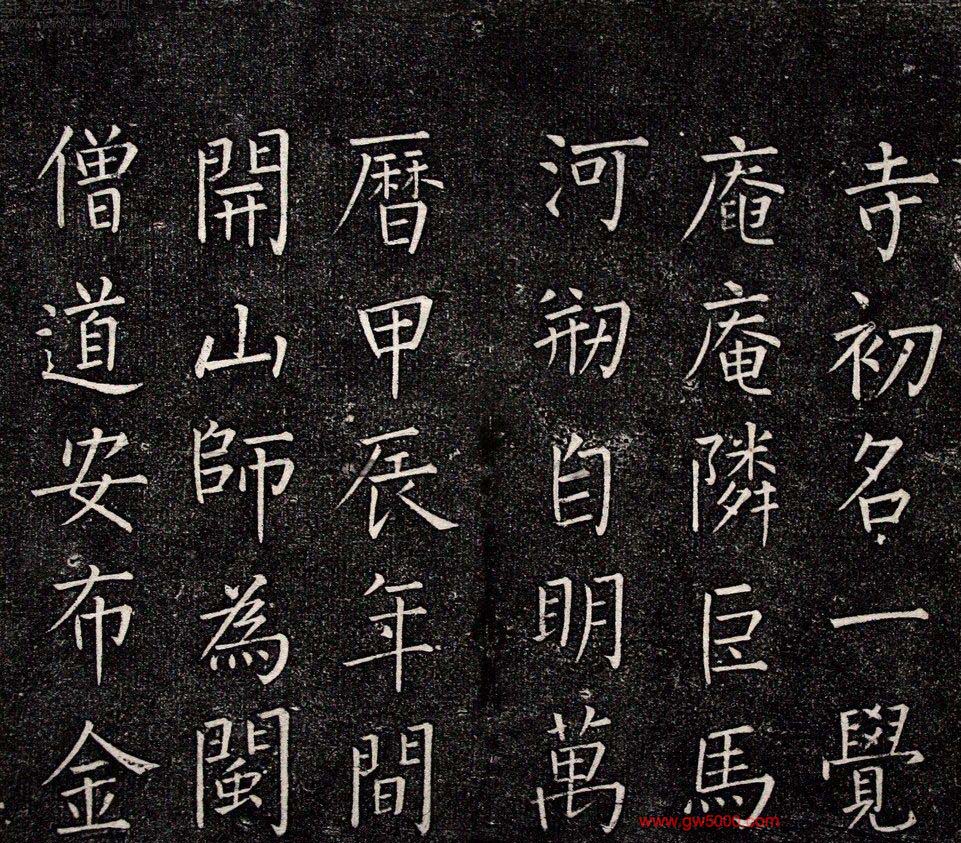 寺初名一覺
庵庵隣巨馬
河刱自明萬
曆甲辰年間
開山師為閩
僧道安布金
www.gw5000.com